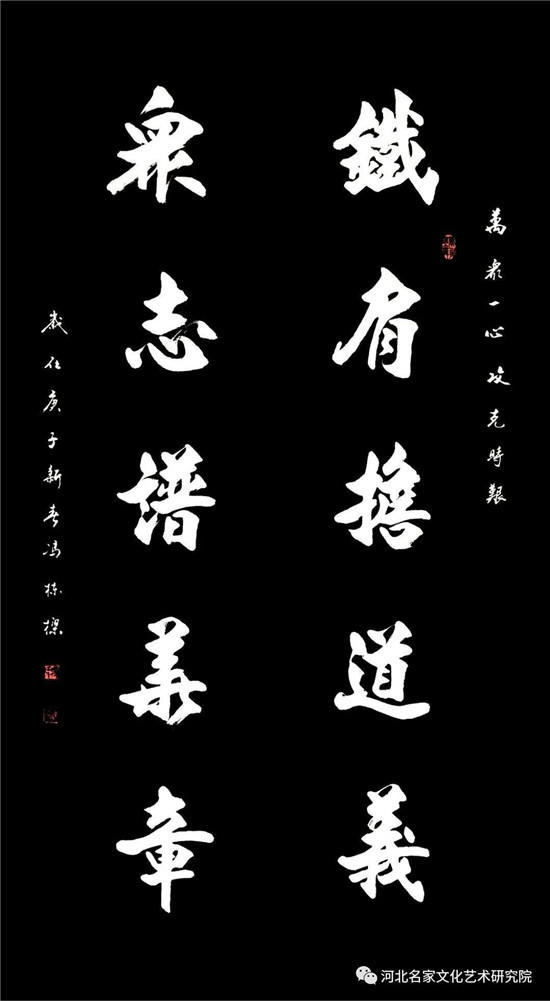 萬衆一心攻克時艱
鐵肩擔道義
衆志譜華章
歲在庚子新春馮栋樑
河北名家文化艺术研究院